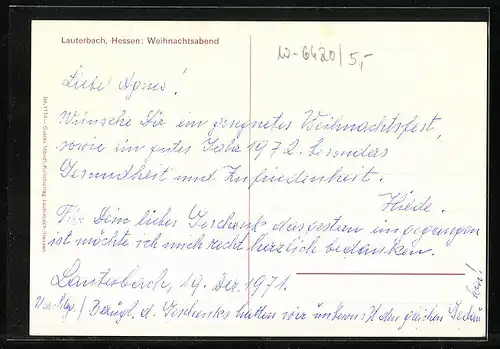 Lauterbach, Hessen: Weihnachtsabend
W-6420/5,-
Liebe Agnes!
Wünsche Dir ein gesegnetes Weihnachtsfest,
sowie ein gutes Jahr 1972. besonders
Gesundheit und Zufriedenheit.
Hiede.
Für Dein liebes Geschenk, das gestern eingegangen
ist möchte ich mich recht herzlich bedanken.
Lauterbach, 19. Dez. 1971.
Bezügl. d. Geschenks hatten wir den gleichen Gedan
ken!